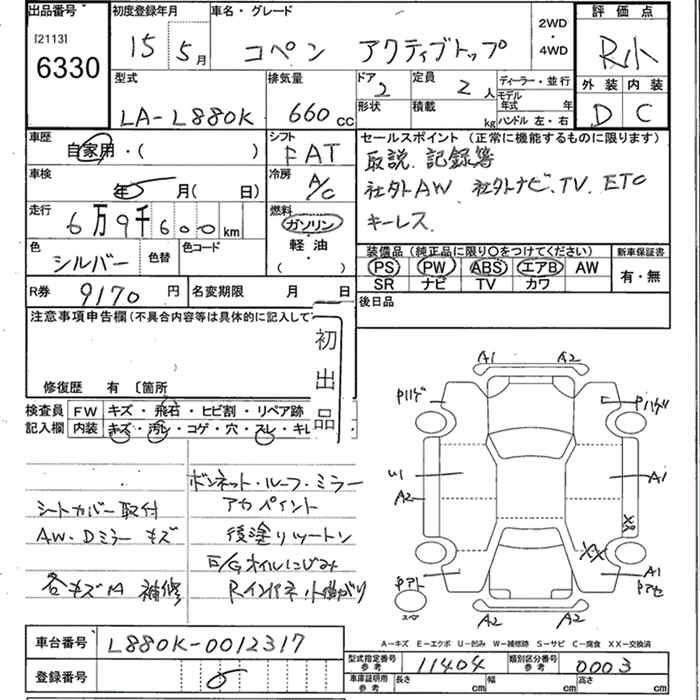 出品番号
[2113]
6330
初度登録年月
15 5月
車名・グレード
コペン アクティブトップ
2WD
・
4WD
評価点
R小
外装 内装
D C
型式
LA-L880K
排気量
660cc
ドア
2
定員
2人
形状
積載
kg
ディーラー・並行
モデル年式 年
ハンドル 左・右
車歴
自家用・( )
シフト
FAT
セールスポイント(正常に機能するものに限ります)
取説 記録簿
社外AW 社外ナビ.TV. ETC
キーレス.
車検
年 月(日)
冷房
A/C
走行
6万9千600km
燃料
ガソリン
軽油
( ・ )
色
シルバー
色替
色コード
装備品(純正品に限り〇をつけてください)
PS PW ABS エアB AW
SR ナビ TV カワ
新車保証書
有・無
R券
9170円
名変期限 月 日
後日品
注意事項申告欄(不具合内容等は具体的に記入して
初出品
修復歴 有 〔箇所
検査員記入欄
FW キズ・飛石・ヒビ割・リペア跡
内装 キズ・汚レ・コゲ・穴・スレ・キレ
シートカバー取付
AW・Dミラー キズ
各キズA 補修
ボンネット・ルーフ・ミラー
アカペイント
後塗りツートン
E/Gオイルにじみ
Rインパネ小曲がり
A1 A2
Pハゲ
Pハゲ
U1
A2
A1
X
XX
Pアト
A1
Pアセ
スペア
A2 A2
車台番号
L880K-0012317
登録番号
A-キズ E-エクボ U-凹み W-補修跡 S-サビ C-腐食 XX-交換済
型式指定番号
参考
11404
類別区分番号
参考
0003
車庫証明用
参考
長さ cm
幅 cm
高さ cm